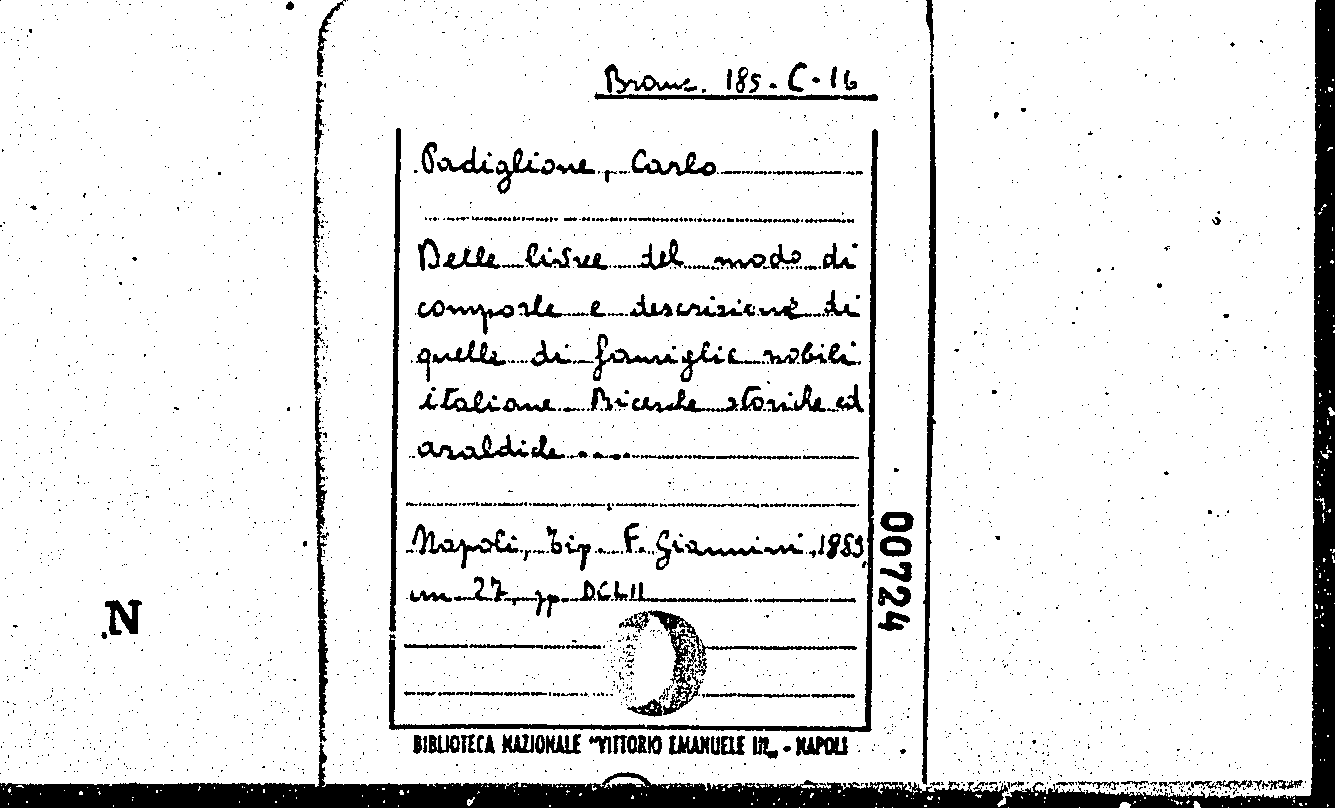 Branc. 185. C. 16
Padiglione, Carlo
Delle livree del modo di
comporle e descrizione di
quelle di famiglie nobili
italiane. Ricerche storiche ed
araldiche....
Napoli, Tip. F. Giannini, 1889,
cm. 27, pp. DCLII
00724
N
BIBLIOTECA NAZIONALE "VITTORIO EMANUELE III„ - NAPOLI